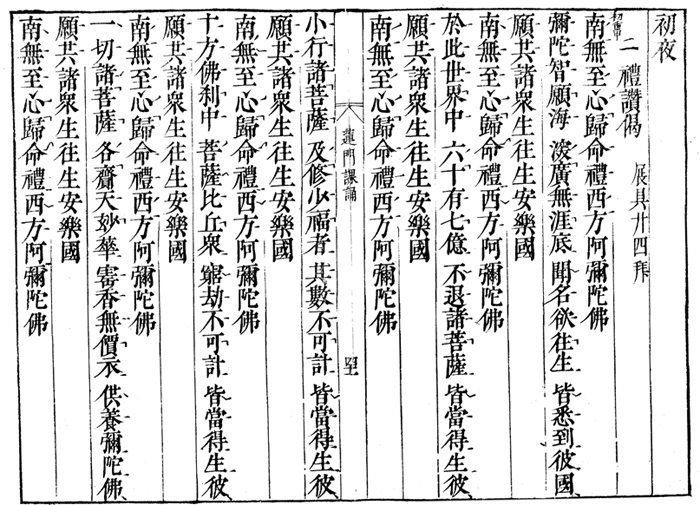 初夜
初重
二 禮讚偈 展具廿四拜
南無至心歸命禮西方阿彌陀佛
彌陀智願海 深廣無涯底 聞名欲往生 皆悉到彼國
願共諸衆生往生安樂國
南無至心歸命禮西方阿彌陀佛
於此世界中 六十有七億 不退諸菩薩 皆當得生彼
願共諸衆生往生安樂國
南無至心歸命禮西方阿彌陀佛
蓮門課誦
小行諸菩薩 及修少福者 其數不可計 皆當得生彼
願共諸衆生往生安樂國
南無至心歸命禮西方阿彌陀佛
十方佛刹中 菩薩比丘衆 窮劫不可計 皆當得生彼
願共諸衆生往生安樂國
南無至心歸命禮西方阿彌陀佛
一切諸菩薩 各齎天妙華 寶香無價衣 供養彌陀佛
願共諸衆生往生安樂國
南無至心歸命禮西方阿彌陀佛